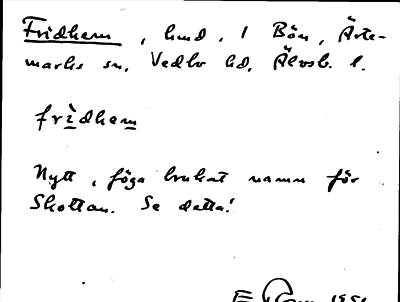 Fridhem, hmd, i Bön, Ärte-
marks sn, Vedbo hd, Älvsb. l.
frìdhem
Nytt, föga brukat namn för
Skottan. Se detta!